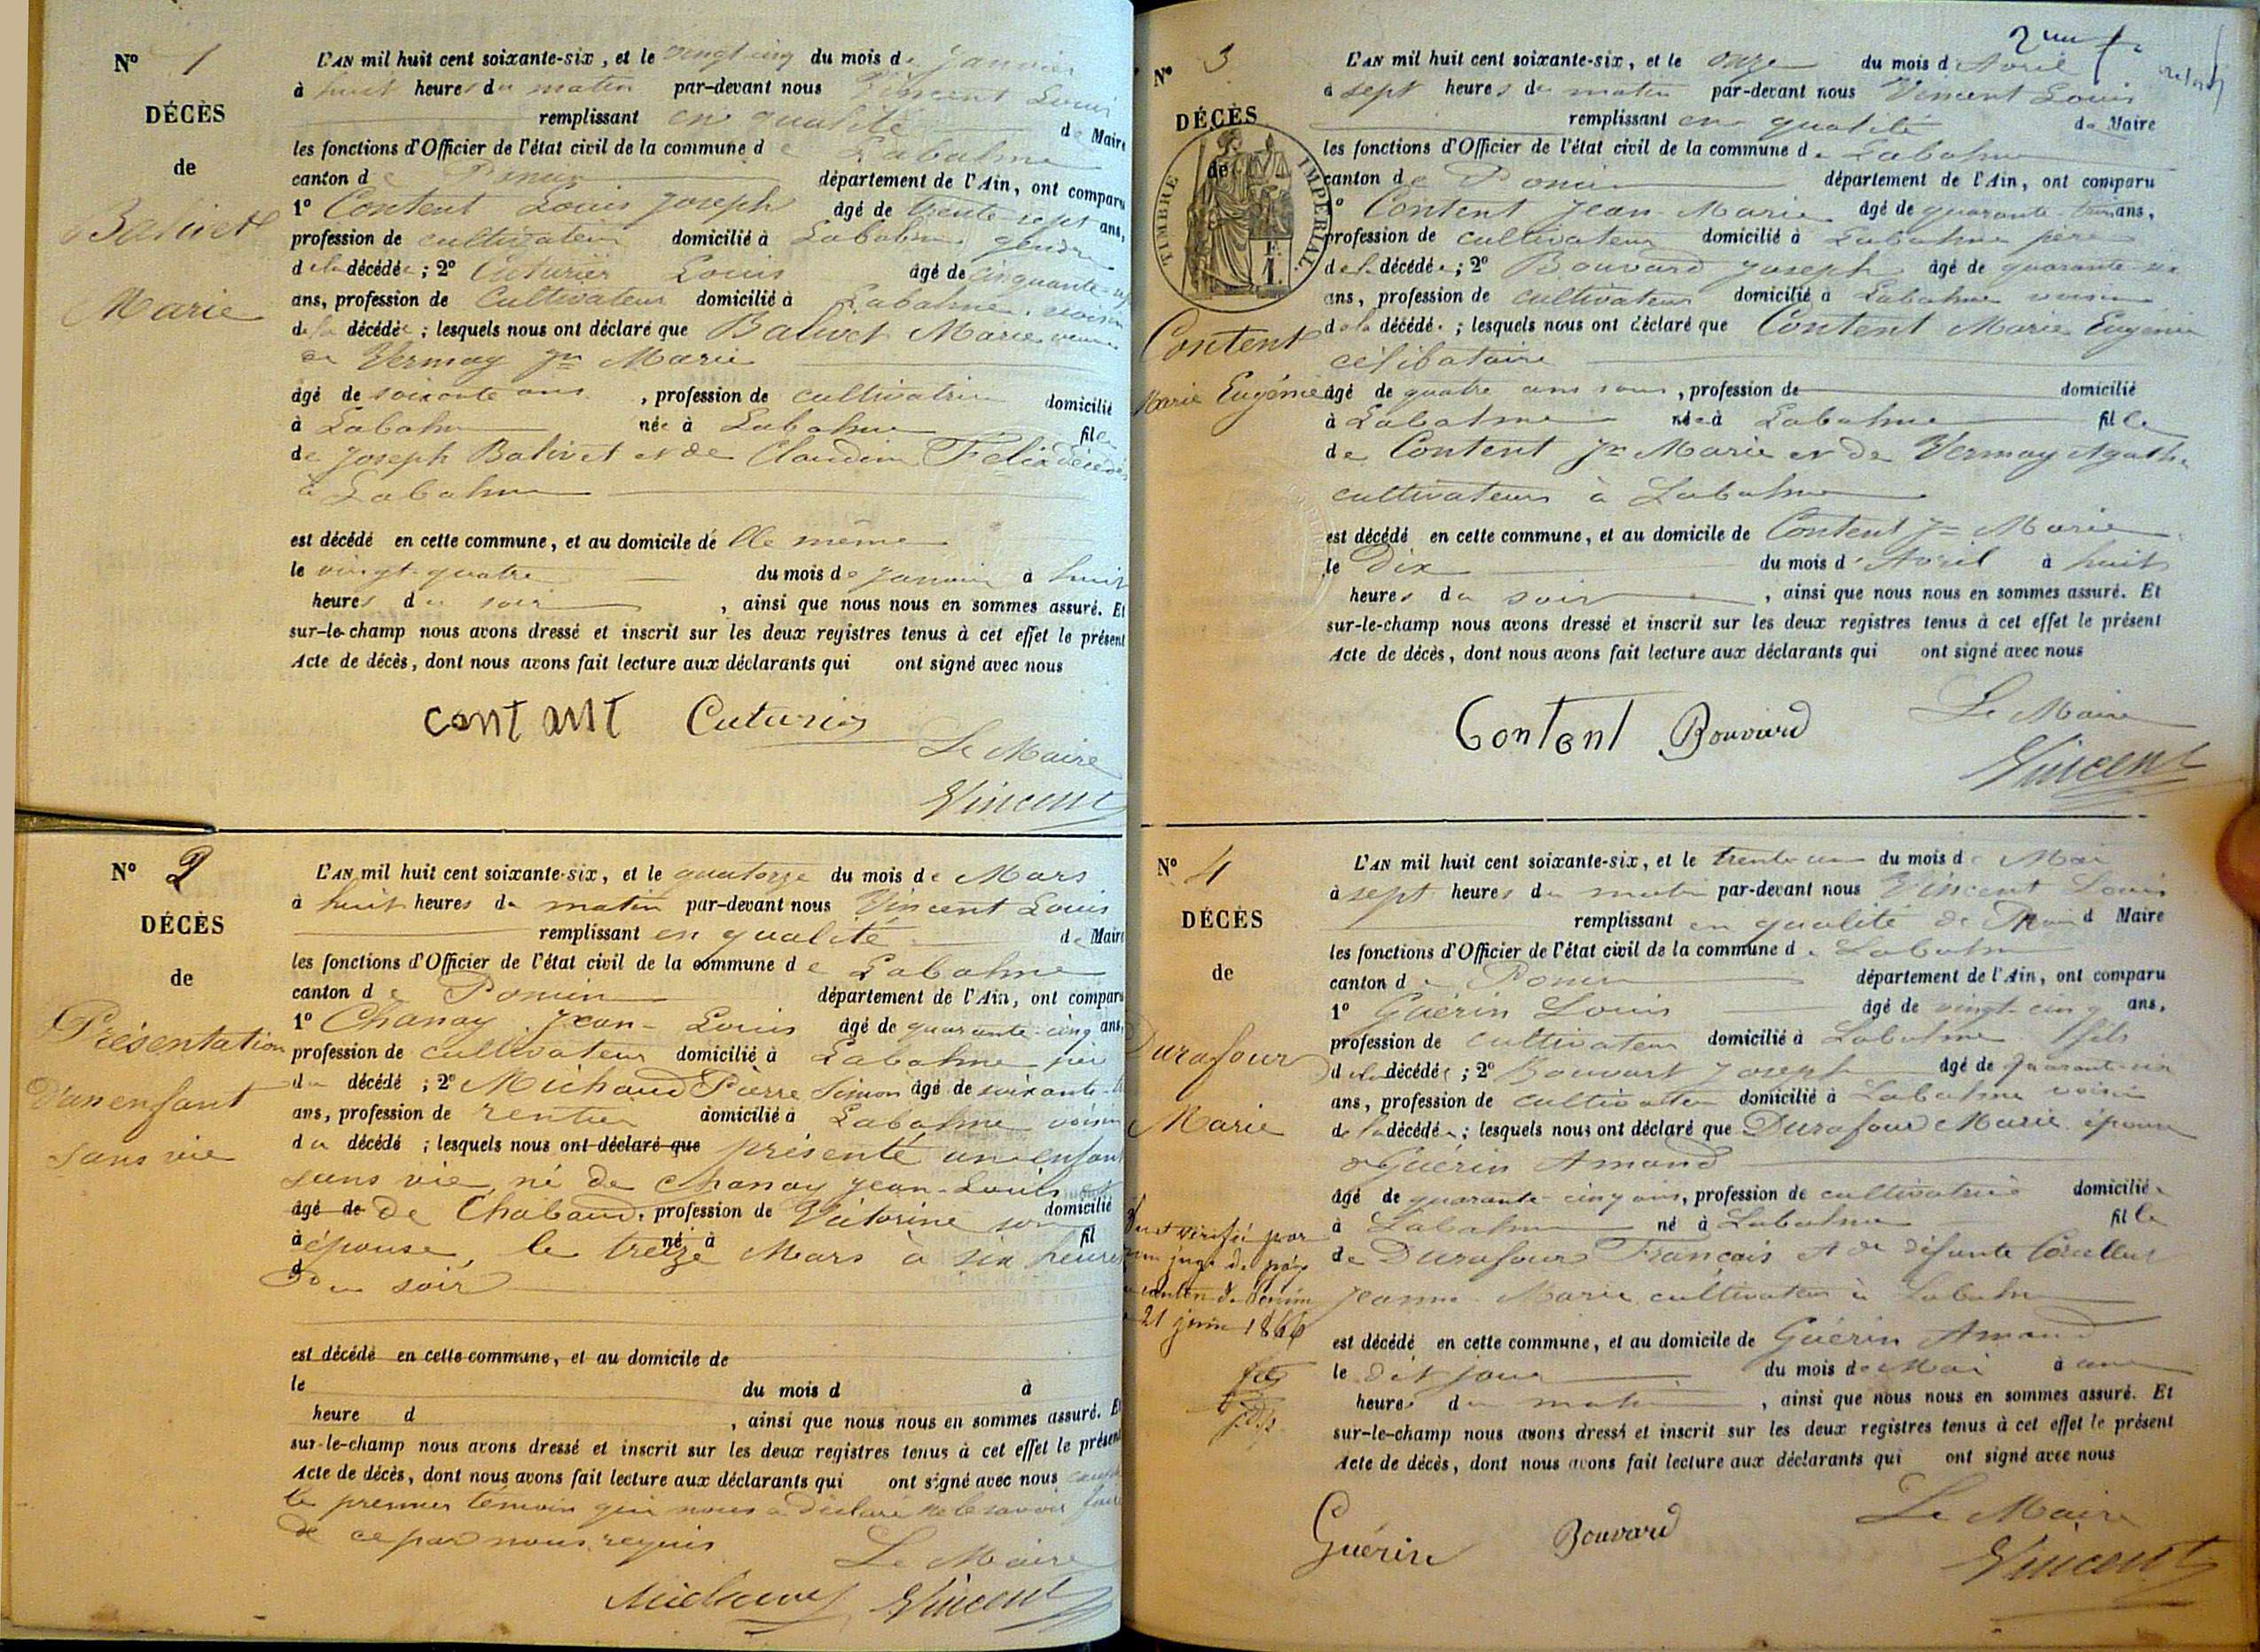 Nº 1
DÉCÈS
de
Balivet
Marie
L'AN mil huit cent soixante-six, et le vingt cinq du mois de janvier
à huit heures du matin par-devant nous Vincent Louis
remplissant en qualité de Maire
les fonctions d'Officier de l'état civil de la commune de Labalme
canton de Poncin département de l'Ain, ont comparu
1º Content Louis Joseph âgé de trente-sept ans,
profession de cultivateur domicilié à Labalme gendre
de la décédée ; 2º Cuturier Louis âgé de cinquante
ans, profession de Cultivateur domicilié à Labalme voisin
de la décédée ; lesquels nous ont déclaré que Balivet Marie veuve
de Vermay Jn Marie
âgé de soixante ans, profession de cultivatrice domicilié
à Labalme née à Labalme fille
de Joseph Balivet et de Claudine Felix décédés
à Labalme
est décédé en cette commune, et au domicile de Elle même
le vingt-quatre du mois de janvier à huit
heures du soir, ainsi que nous nous en sommes assuré. Et
sur-le-champ nous avons dressé et inscrit sur les deux registres tenus à cet effet le présent
Acte de décès, dont nous avons fait lecture aux déclarants qui ont signé avec nous
contant Cuturier
Le Maire
Vincent
Nº 2
DÉCÈS
de
Présentation
d'un enfant
sans vie
L'AN mil huit cent soixante-six, et le quatorze du mois de Mars
à huit heures du matin par-devant nous Vincent Louis
remplissant en qualité de Maire
les fonctions d'Officier de l'état civil de la commune de Labalme
canton de Poncin département de l'Ain, ont comparu
1º Chanay Jean-Louis âgé de quarante-cinq ans,
profession de cultivateur domicilié à Labalme père
du décédé ; 2º Michaud Pierre Simon âgé de soixante
ans, profession de rentier domicilié à Labalme voisin
du décédé ; lesquels nous ont déclaré que présenté un enfant
sans vie, né de Chanay Jean-Louis et
âgé de de Chabaud, profession de Victorine son domicilié
à épouse, le né à treize Mars à six heures fil
d du soir
est décédé en cette commune, et au domicile de
le du mois d à
heure d , ainsi que nous nous en sommes assuré. Et
sur-le-champ nous avons dressé et inscrit sur les deux registres tenus à cet effet le présent
Acte de décès, dont nous avons fait lecture aux déclarants qui ont signé avec nous
le premier témoin qui nous a déclaré ne le savoir faire
de ce par nous requis
Le Maire
Michaud Vincent
2me f.
Nº 3
DÉCÈS
de
TIMBRE IMPÉRIAL
Content
Marie Eugénie
L'AN mil huit cent soixante-six, et le onze du mois d'Avril
à sept heures du matin par-devant nous Vincent Louis
remplissant en qualité de Maire
les fonctions d'Officier de l'état civil de la commune de Labalme
canton de Poncin département de l'Ain, ont comparu
1º Content Jean-Marie âgé de quarante-trois ans,
profession de cultivateur domicilié à Labalme père
de la décédée ; 2º Bouvard Joseph âgé de quarante-six
ans, profession de cultivateur domicilié à Labalme voisin
de la décédée ; lesquels nous ont déclaré que Content Marie Eugénie
célibataire
âgé de quatre ans, profession de domicilié
à Labalme née à Labalme fille
de Content Jn Marie et de Vermay Agathe
cultivateurs à Labalme
est décédé en cette commune, et au domicile de Content Jn Marie
le Dix du mois d'Avril à huit
heures du soir, ainsi que nous nous en sommes assuré. Et
sur-le-champ nous avons dressé et inscrit sur les deux registres tenus à cet effet le présent
Acte de décès, dont nous avons fait lecture aux déclarants qui ont signé avec nous
Content Bouvard
Le Maire
Vincent
Nº 4
DÉCÈS
de
Durafour
Marie
vérifié par
juge de paix
canton de Poncin
21 juin 1866
L'AN mil huit cent soixante-six, et le trente un du mois de Mai
à sept heures du matin par-devant nous Vincent Louis
remplissant en qualité de Maire d Maire
les fonctions d'Officier de l'état civil de la commune de Labalme
canton de Poncin département de l'Ain, ont comparu
1º Guérin Louis âgé de vingt-cinq ans,
profession de cultivateur domicilié à Labalme fils
de la décédée ; 2º Bouvart Joseph âgé de quarante-six
ans, profession de cultivateur domicilié à Labalme voisin
de la décédée ; lesquels nous ont déclaré que Durafour Marie épouse
de Guérin Amand
âgé de quarante-cinq ans, profession de cultivatrice domiciliée
à Labalme né à Labalme fille
de Durafour Français et de défunte
Jeanne Marie cultivateur à Labalme
est décédé en cette commune, et au domicile de Guérin Amand
le dit jour du mois de Mai à une
heures du matin, ainsi que nous nous en sommes assuré. Et
sur-le-champ nous avons dressé et inscrit sur les deux registres tenus à cet effet le présent
Acte de décès, dont nous avons fait lecture aux déclarants qui ont signé avec nous
Guérin Bouvard
Le Maire
Vincent